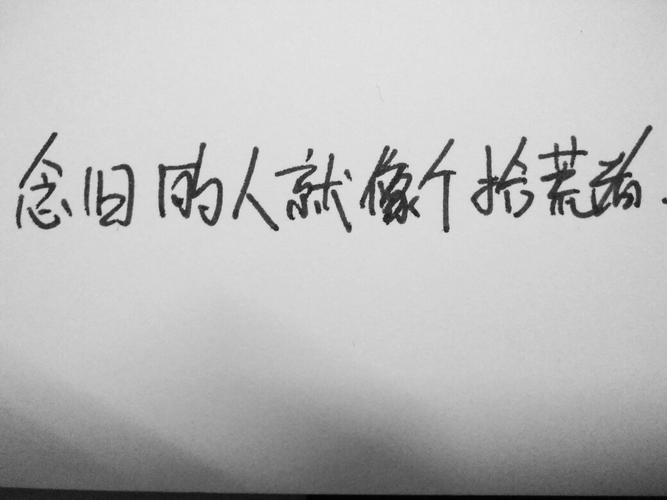 念旧的人就像个拾荒者.